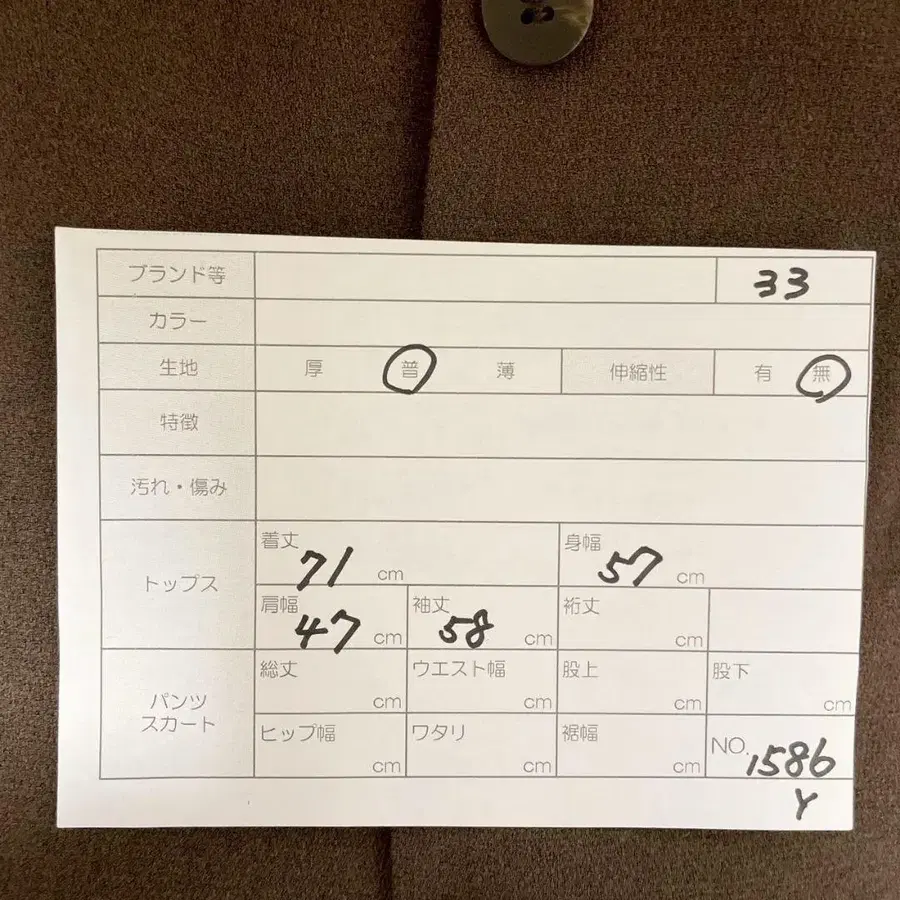 ブランド等 33
カラー
生地 厚 普 薄 伸縮性 有 無
特徴
汚れ・傷み
トップス
着丈 71 cm 身幅 57 cm
肩幅 47 cm 袖丈 58 cm 裄丈 cm
パンツ
スカート
総丈 cm ウエスト幅 cm 股上 cm 股下 cm
ヒップ幅 cm ワタリ cm 裾幅 cm NO. 1586
Y